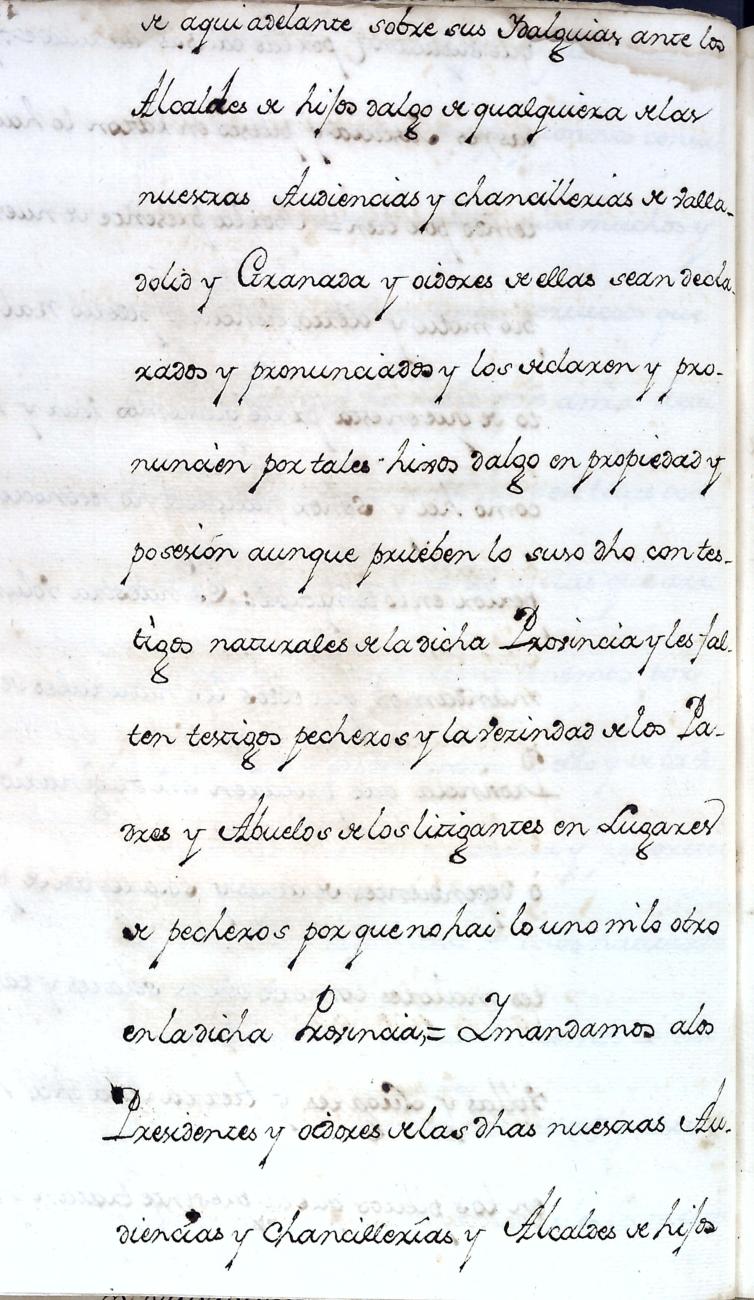 de aqui adelante sobre sus Ydalguias ante los
Alcaldes de hijos dalgo de qualquiera delas
nuestras Audiencias y chancillerias de Valla-
dolid y Granada y oidores de ellas sean decla-
rados y pronunciados y los declaren y pro-
nuncien por tales hixos dalgo en propiedad y
posesión aunque prueben lo suso dho con tes-
tigos naturales dela dicha Provincia y les fal-
ten testigos pecheros y la vezindad de los Pa-
dres y Abuelos de los litigantes en Lugares
de pecheros por que no hai lo uno ni lo otro
en la dicha Provincia,= Ymandamos alos
Presidentes y oidores de las dhas nuestras Au-
diencias y Chancillerías y Alcaldes de hijos